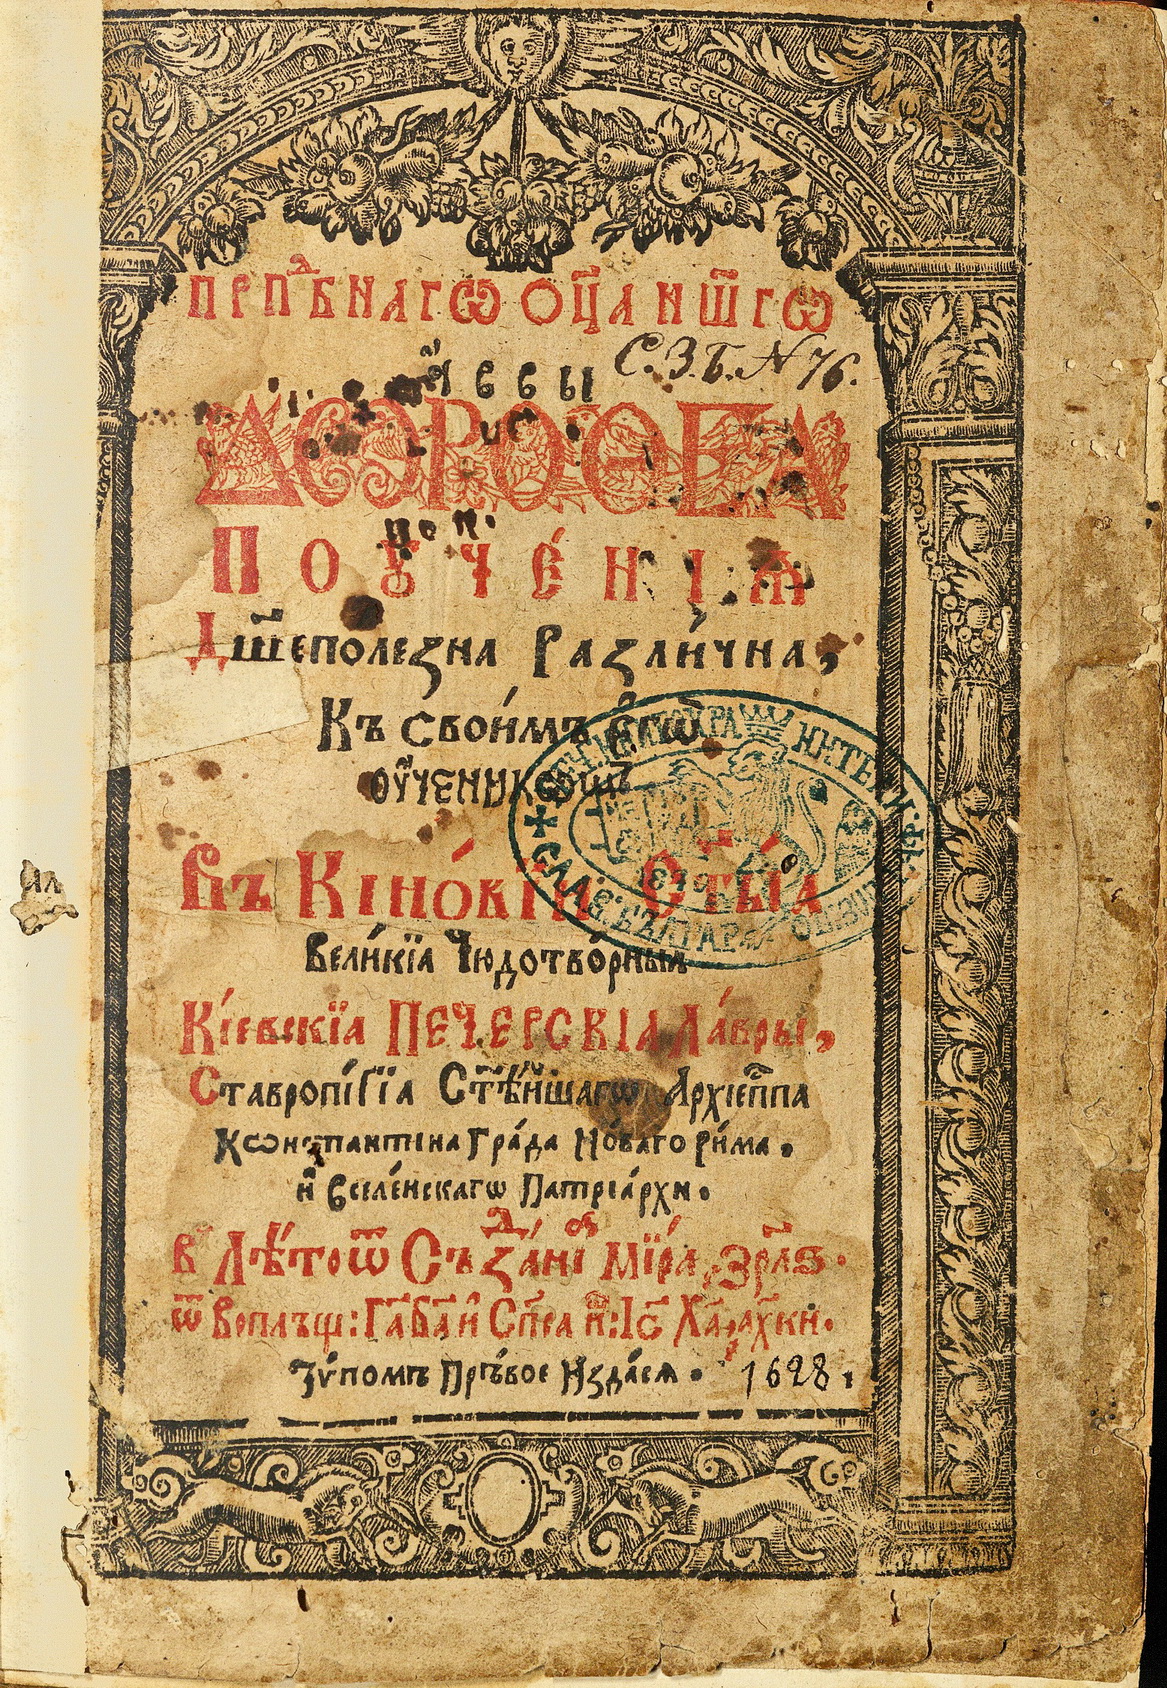 ПРПⷣБНАГѠ ОЦ҃А НШ҃ГѠ
А҆́ввы
С. З. Б. N 76.
ДОРОѲЕА
ПОꙋЧЕ́НІѦ
Дш҃еполезна Разли́чна,
Къ свои́мъ
оу҆ченикѡмъ
Въ Кіно́вїи Ст҃ыѧ
Вели́кїа Чюдотво́рныѧ
Кі́евскїа Пече́рскїа Ла́вры,
Ставропі́гїа Ст҃ѣ́йшагѡ Архіепⷭ҇па
Кѡнстантіна Гра́да Но́ваго Ри́ма.
и҆ Вселе́нскагѡ Патріа́рхи.
въ Лѣ́тоѿ Съзⷣанїѧ Мі́ра, ҂зрл҃ѕ.
ѿ Воплъщ: Гⷭ҇а Бг҃а и҆ Сп҃са н҃: Іс҃ Хⷭ҇а, ҂ах҃ки.
Тѵ́помъ Пръ́вое Изда́сѧ. 1628.
1878